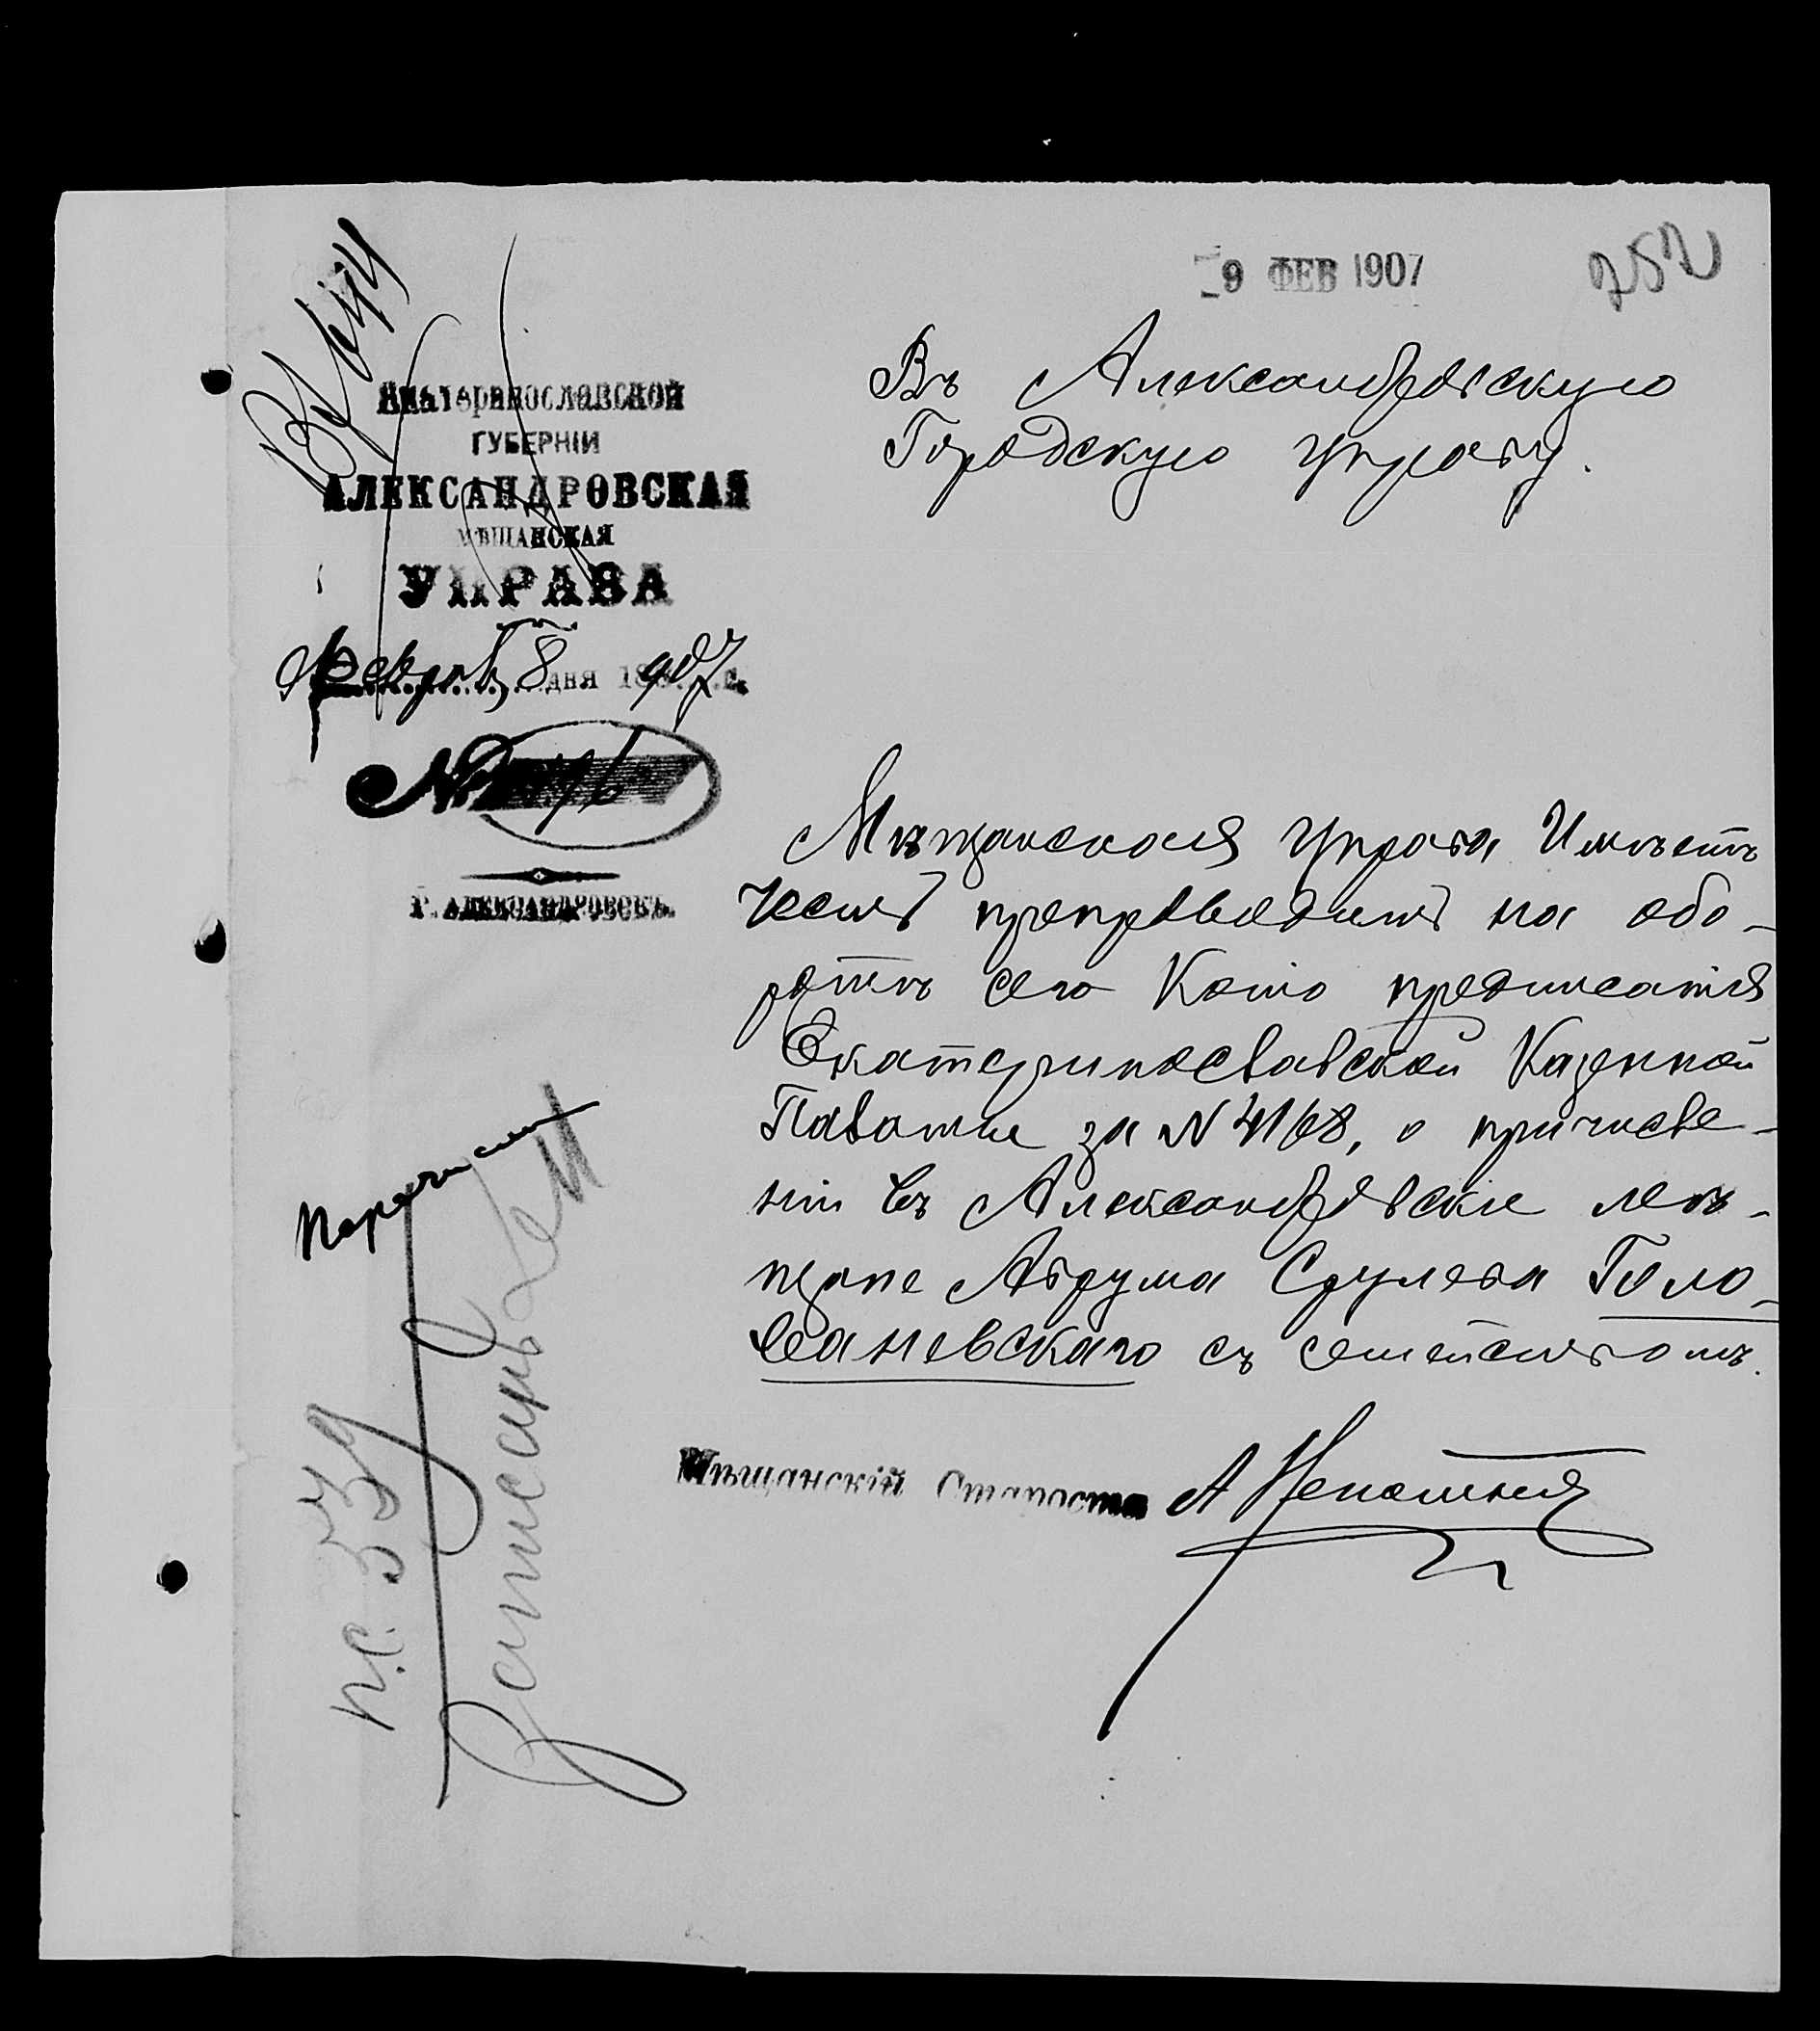 9 ФЕВ 1907
252
Екатеринославской
ГУБЕРНІИ
АЛЕКСАНДРОВСКАЯ
МѢЩАНСКАЯ
УПРАВА
Феврал 8 дня 1907 г.
№
Г. АЛЕКСАНДРОВСКЪ.
Въ Александровскую
Городскую управу.
Мѣщанская управа Имѣетъ
честь препроводить на обо-
ротѣ сего Копію предписанія
Екатеринославской Казенной
Палаты за N 4168, о причисле-
ніи въ Александровскіе мѣ-
щане Аврума Срулева Голо-
ваневскаго съ семействомъ.
Мѣщанскій Староста А
Перечислить
п.с. 339
Записанъ